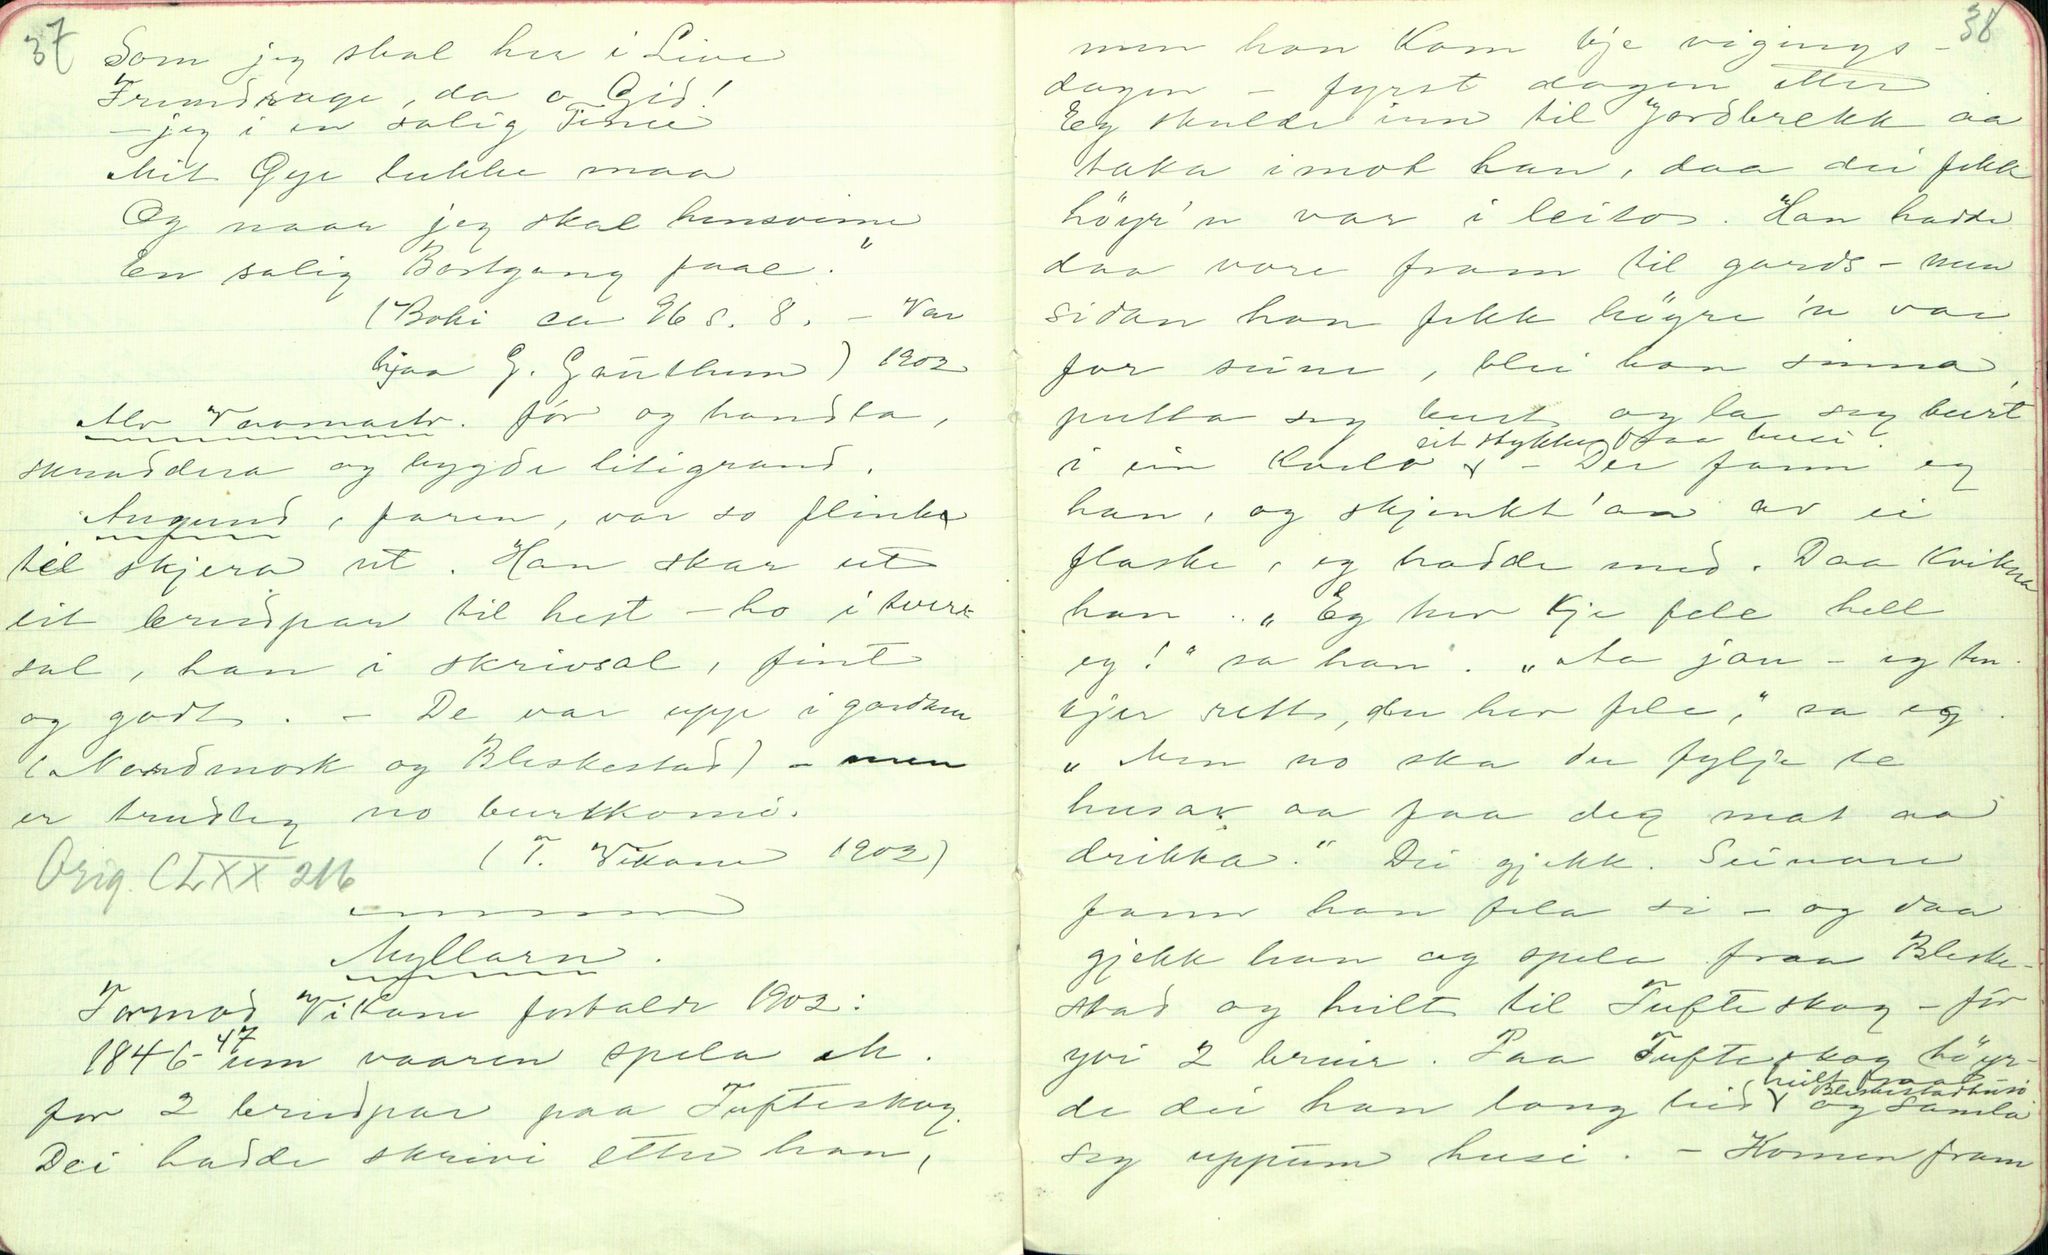 37
Som jeg skal her i Live
Fremdrage, da o Gid!
- jeg i en salig Time
Mit Øye lukke maa
Og naar jeg skal hensvime
En salig Bortgang faae."
(Boki ca 96 s. 8. - Var
hjaa G. Gauthum) 1902
Alv Vaamartv. fór og handla,
skraddera og bygde litigrand.
Augund, faren, var so flinke
til skjera ut. Han skar ut
eit brudpar til hest - ho i tver-
sal, han i skrivsal, fint
og godt. - De var uppe i gardane
(Nordmork og Bleskestad) - men
er truleg no burtkomi.
(T. Vikane 1902)
Orig. CLXX 216
Myllarn.
Tormod Vikane fortalde 1902:
1846-47 um vaaren spela M.
for 2 brudpar paa Tufteskog.
Dei hadde skrivi etter han,
38
men han kom kje vigings-
dagen - fyrst dagen etter
Eg skulde inn til Jordbrekk aa
taka imot han, daa dei fekk
höyr'n var i leite. Han hadde
daa vore fram til gards - men
sidan han fekk högre 'n var
for seine, blei han sinna,
putta seg burt og la seg burt
i ein Kvelv eit stykke fraa husi. - Der fann eg
han, og skjenkt'an av ei
flaske, eg hadde med. Daa kvikna
han. „Eg hev kje fele hell
eg!" sa han. „Aa jau - eg ten-
kjer rett, du hev fele," sa eg.
„Men no ska du fylje te
husar aa faa deg mat aa
drikka." Dei gjekk. Seinare
fann han fela si - og daa
gjekk han og spela fraa Bleske-
stad og heilt til Tufteskog - fór
yvi 2 bruir. Paa Tufteskog höyr-
de dei han lang leid heilt fraa Bleskestadhusi og samla
seg uppum husi. - Komen fram